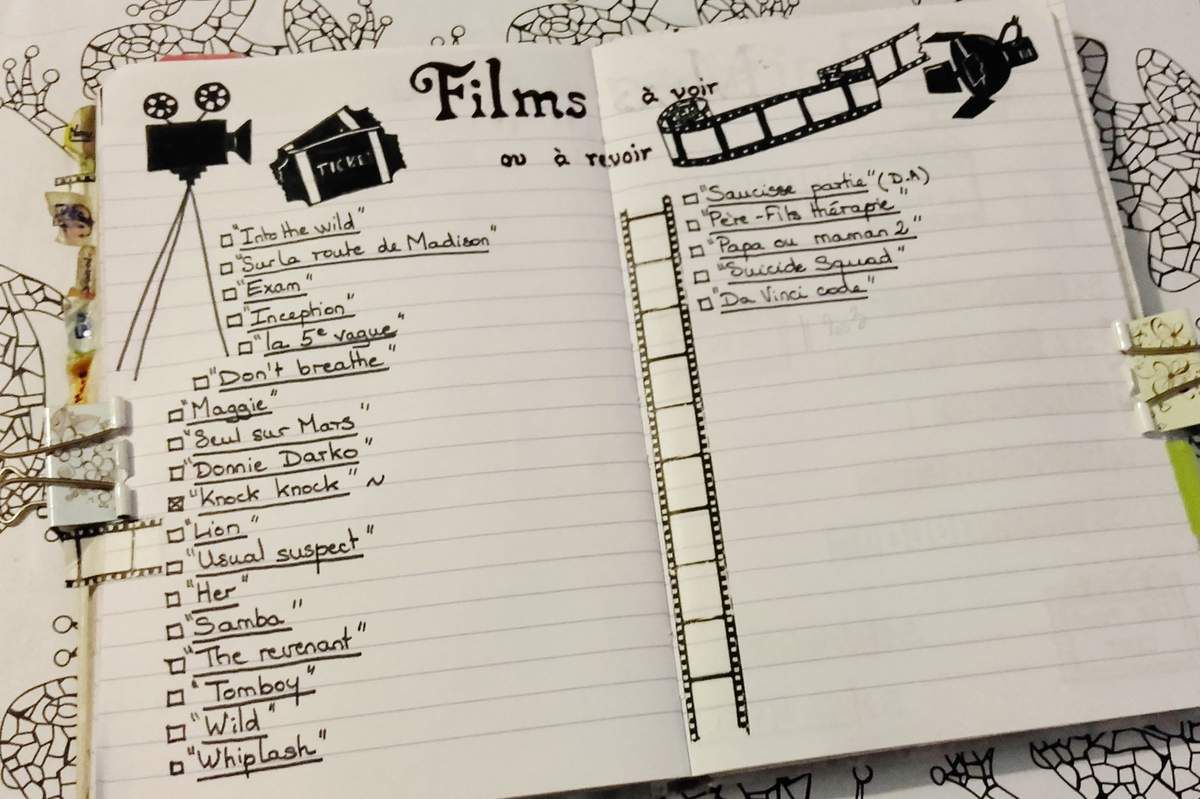 Films
à voir
ou à revoir
TICKET
"Into the wild"
"Sur la route de Madison"
"Exam"
"Inception"
"la 5e vague"
"Don't breathe"
"Maggie"
"Seul sur Mars"
"Donnie Darko"
"Knock knock" ~
"Lion"
"Usual suspect"
"Her"
"Samba"
"The revenant"
"Tomboy"
"Wild"
"Whiplash"
"Saucisse partie" (D.A)
"Père-Fils thérapie"
"Papa ou maman 2"
"Suicide Squad"
"Da Vinci code"